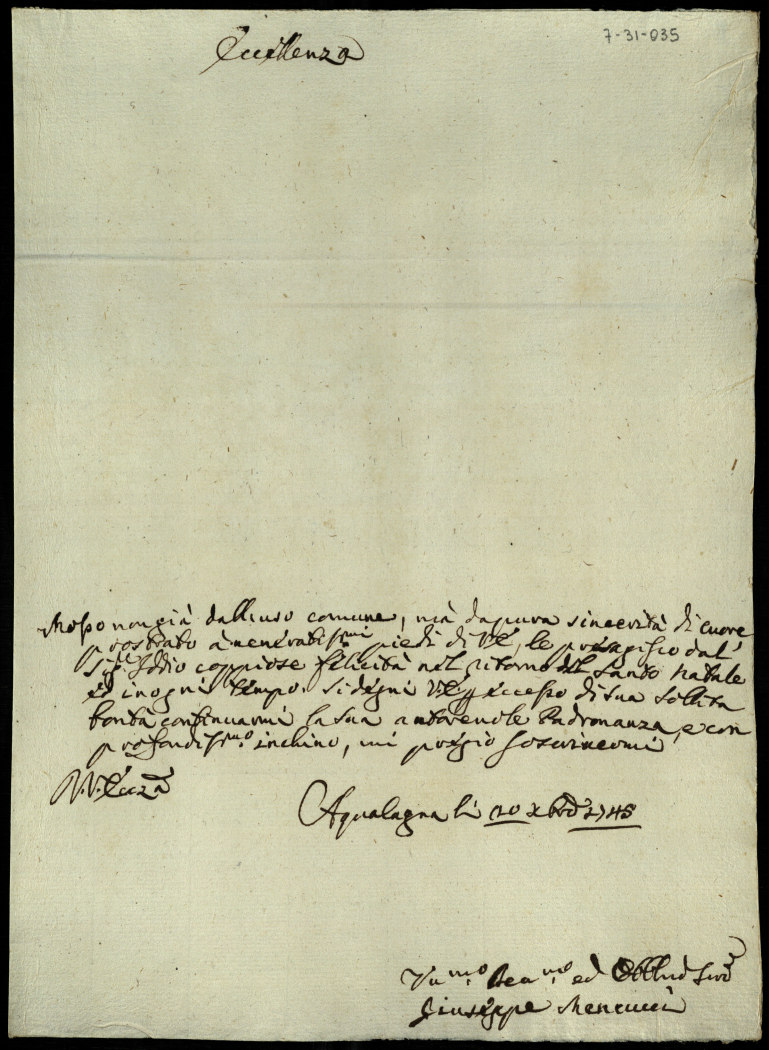 7-31-035
Eccellenza
Mosso non già dall'uso comune, mà da pura sincerità di cuore
prostrato à venerabilissimi piedi di V.E., le presagisco dal
Sig.re Iddio coppiose felicità nel ritorno del Santo Natale
ed in ogni tempo. Si degni V.E. p eccesso di sua solita
bontà continuarmi la sua autorevole Padronanza, e con
profondiss.mo inchino, mi pregio soscrivermi
D.V. Ecczà
Aqualagna li 20 Xbre 1745
Um.mo Dev.mo ed Obbl Serv
Giuseppe Mencucci